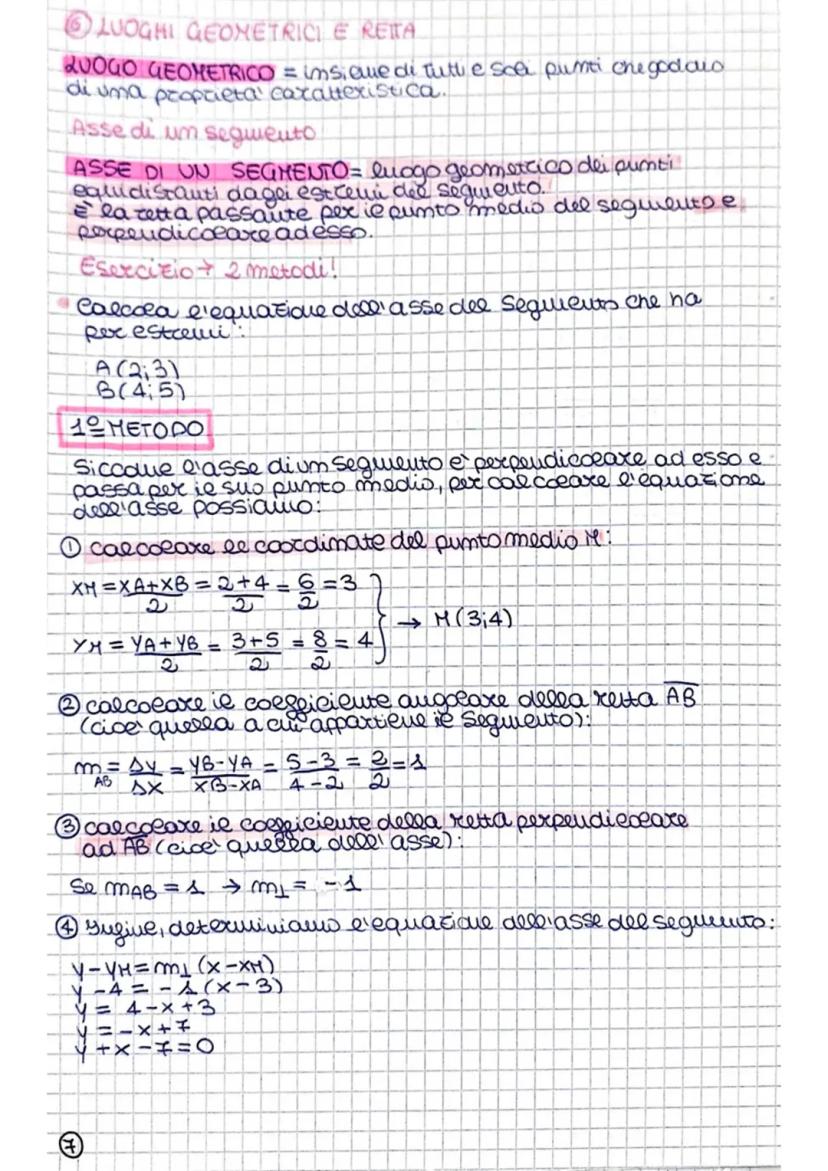 ⑥ LUOGHI GEOMETRICI E RETTA
LUOGO GEOMETRICO = insieme di tutti e soli punti che godano
di una proprietà caratteristica.
Asse di un segmento
ASSE DI UN SEGMENTO = luogo geometrico dei punti
equidistanti dagli estremi del segmento.
È la retta passante per il punto medio del segmento e
perpendicolare ad esso.
Esercizio → 2 metodi!
Calcola l'equazione dell'asse del segmento che ha
per estremi:
A(2;3)
B(4;5)
1º METODO
Siccome l'asse di un segmento è perpendicolare ad esso e
passa per il suo punto medio, per calcolare l'equazione
dell'asse possiamo:
① calcolare le coordinate del punto medio M:
XM = XA+XB/2 = 2+4/2 = 6/2 = 3
YM = YA+YB/2 = 3+5/2 = 8/2 = 4 → M(3;4)
② calcolare il coefficiente angolare della retta AB
(cioè quella a cui appartiene il segmento):
mAB = Δy/Δx = YB-YA/XB-XA = 5-3/4-2 = 2/2 = 1
③ calcolare il coefficiente della retta perpendicolare
ad AB (cioè quella dell'asse):
Se mAB = 1 → m⊥ = -1
④ Infine, determiniamo l'equazione dell'asse del segmento:
y-yM = m⊥ (x-xM)
y-4 = -1(x-3)
y = 4-x+3
y = -x+7
y+x-7=0
⑦